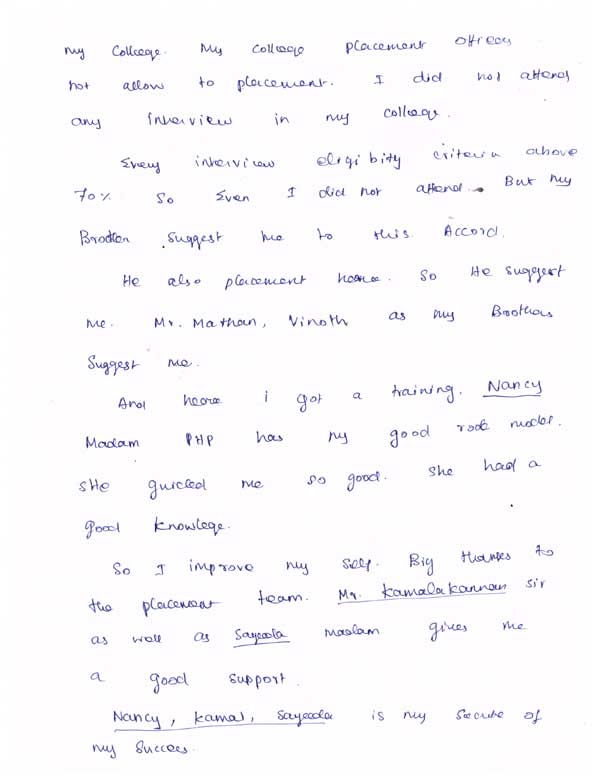 my College. My college placement officers
not allow to placement. I did not attend
any interview in my college.
Every interview eligibity criteria above
70% So Even I did not attend. But my
Brother suggest me to this Accord.
He also placement heare. So He suggest
me. Mr. Mathan, Vinoth as my Brothers
Suggest me.
And heare i got a training. Nancy
Madam PHP has my good role model.
She guided me so good. She had a
good knowlege.
So I improve my self. Big thanks to
the placement team. Mr. Kamalakannan sir
as well as Sayeeda madam gives me
a good support.
Nancy, Kamal, Sayeeda is my secute of
my Success.